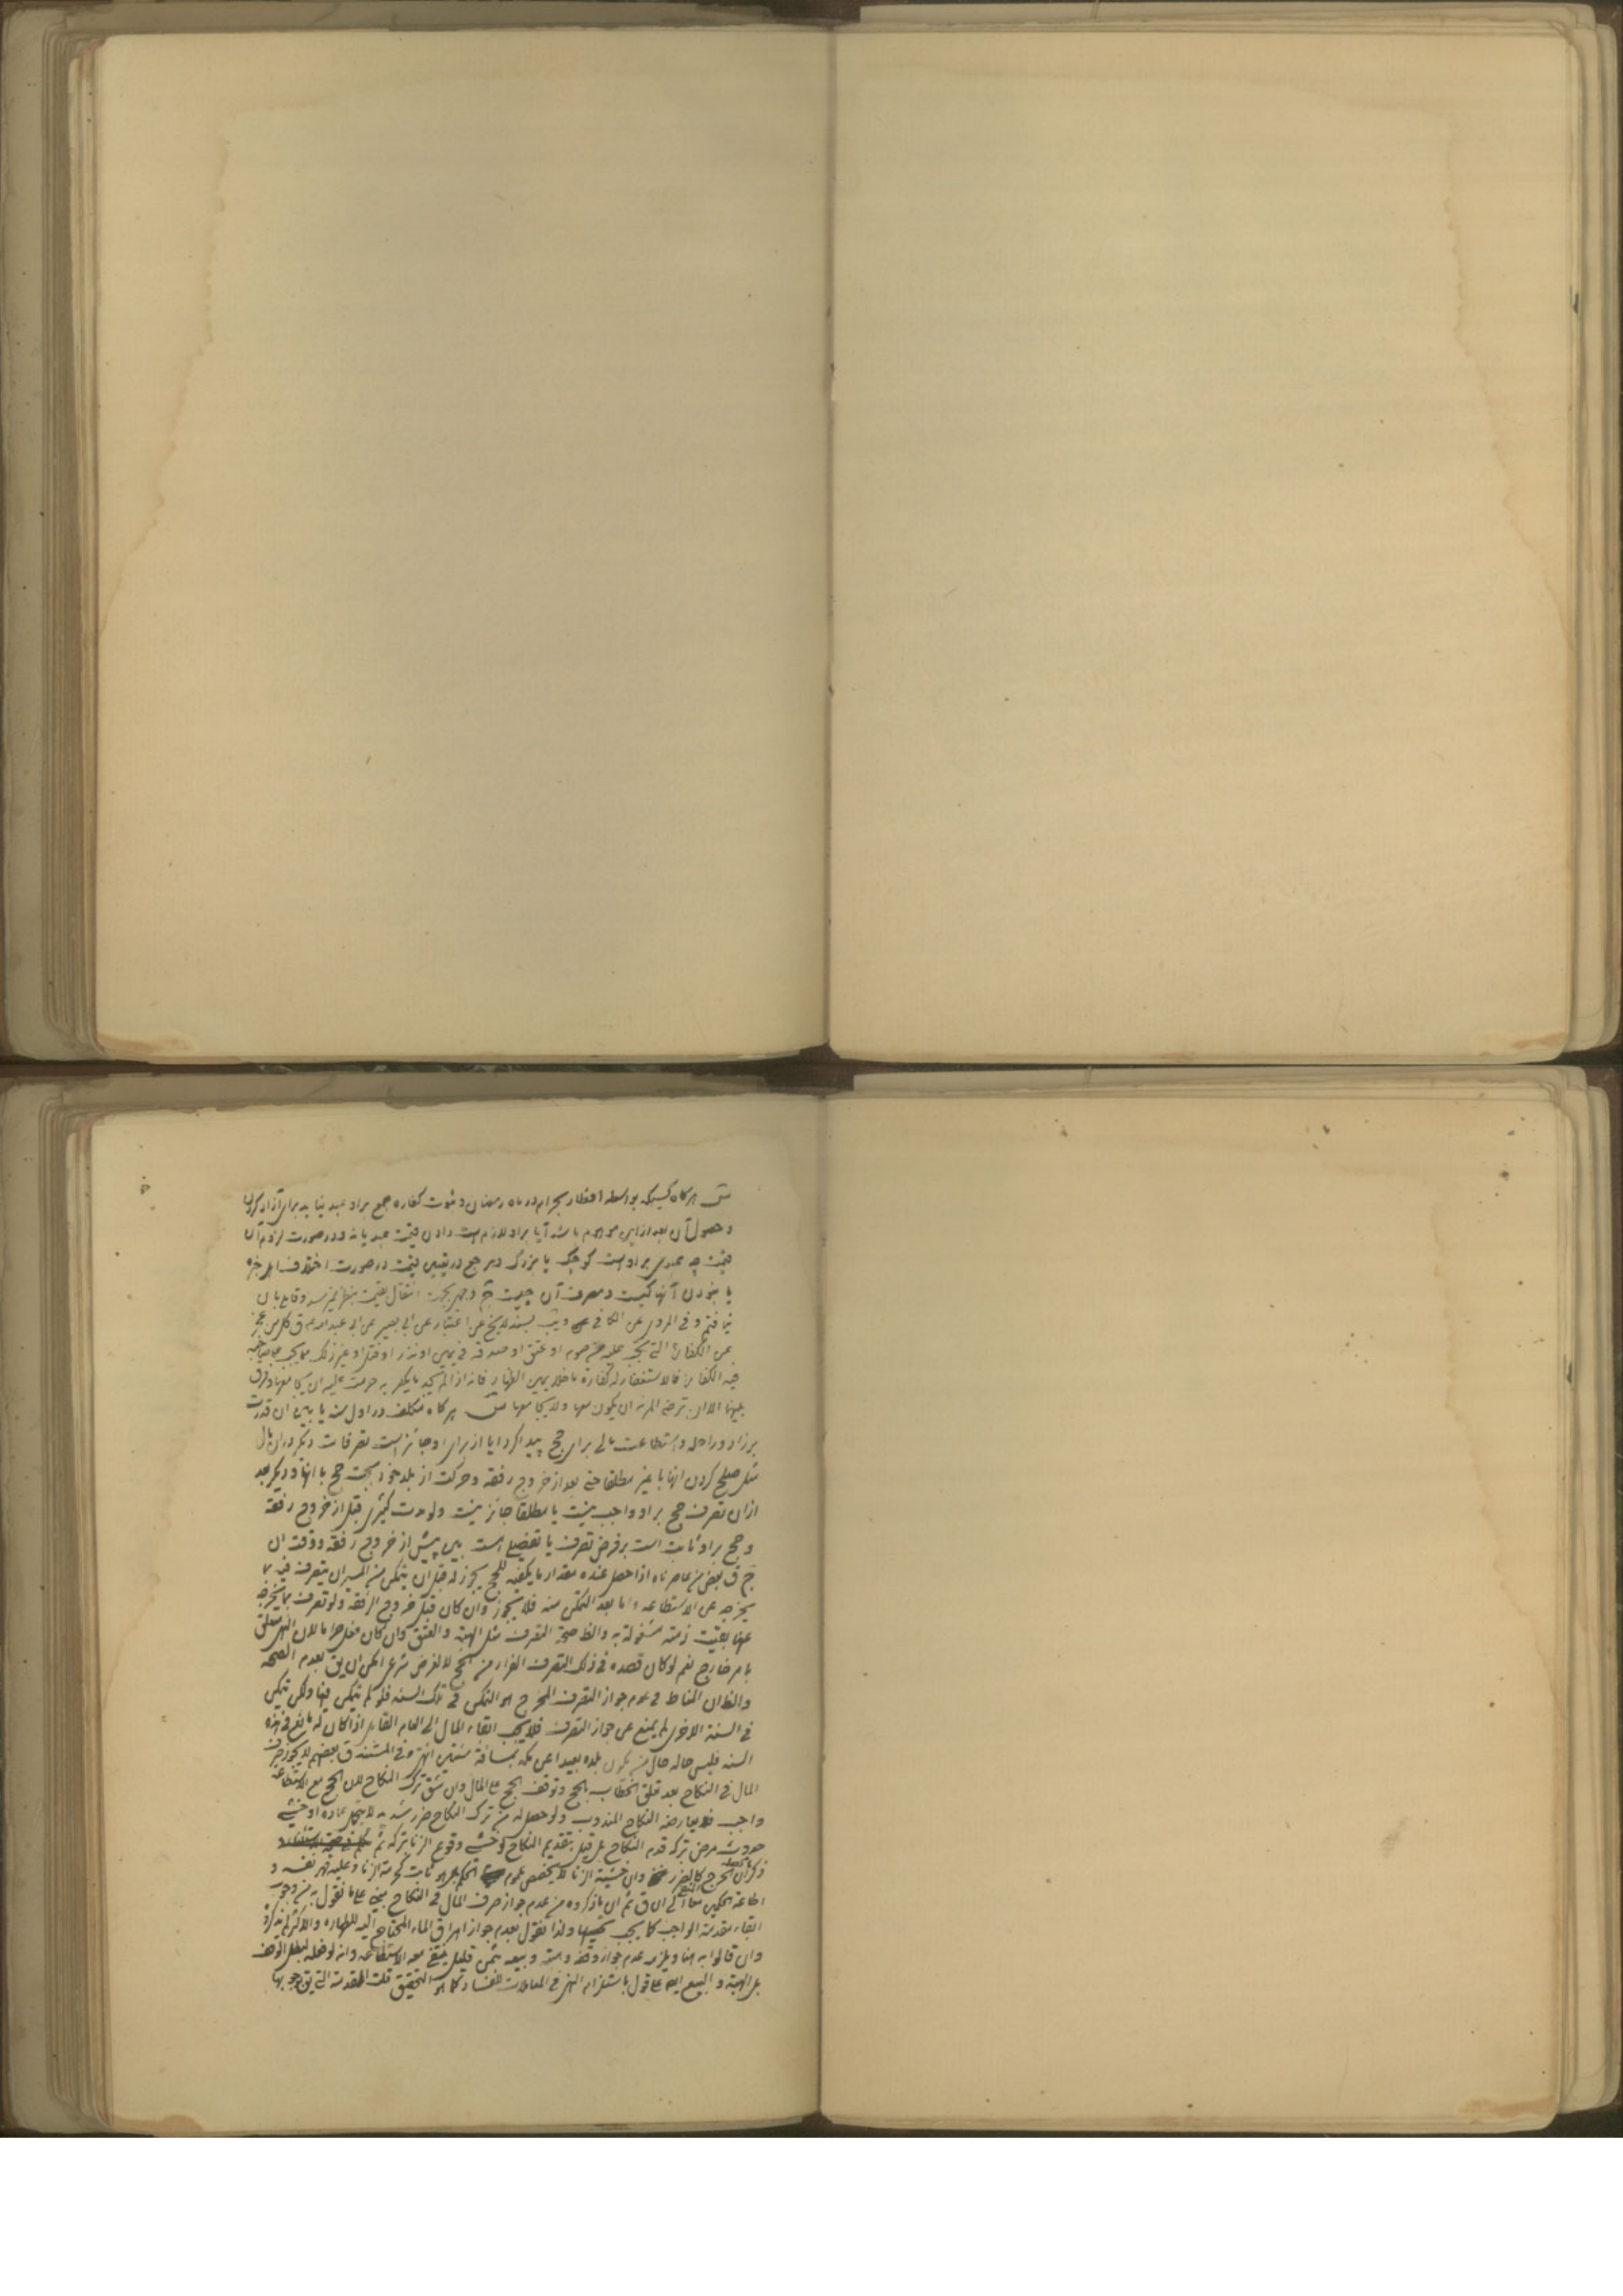 س هرکاه کسیکه بواسطه افطار بحرام در ماه رمضان و ثبوت کفاره جمع براو عبد نیابد برای آزاد کردن
و حصول آن بعد از این موهوم باشد آیا براو لازم است دادن قیمت عبد یا نه و در صورت لزوم آن
قیمت چه عبدی براو است کوچک یا بزرگ و مرجع در تعیین قیمت در صورت اختلاف اهل خبره
یا نبودن آنها کیست و مصرف آن چیست ج وجهی بجهت انتقال بقیمت بنظر نمیرسد و قایل بان
نیافتم و فی المروی عن الکافی و یب بسند للشیخ عن اعتبار عن ابی بصیر عن ابی عبد الله ع ق کل من عجز
عن الکفارة التی تجب علیه من صوم او عتق او صدقه فی یمین او نذر او قتل او غیر ذلک مما یجب علی صاحبه
فیه الکفارة فالاستغفار له کفارة ما خلا یمین الظهار فانه اذا لم یجد ما یکفر به حرمت علیه ان یجامعها و فرق
بینهما الا ان ترضی المرئه ان یکون معها ولا یجامعها س هرکاه مکلف در اول سنه یا بین ان قدرت
بر زاد و راحله و استطاعت مالی برای حج پیدا کرد ایا از برای او جائز است تصرفات دیگر در ان مال
مثل صلح کردن انها با غیر مطلقا حتی بعد از خروج رفقه و حرکت از بلد خود بجهت حج با انها و دیگر بعد
ازان تصرف حج براو واجب نیست یا مطلقا جائز نیست ولو مدت کثیری قبل از خروج رفقه
و حج براو ثابت است بر فرض تصرف یا تفصیلی است بین پیش از خروج رفقه و وقت ان
ج ق بعض من عاصرناه اذا حصل عنده مقدار ما یکفیه للحج یجوز له قبل ان یتمکن من المسیر ان یتصرف فیه بما
یخرجه عن الاستطاعه و اما بعد التمکن منه فلا یجوز وان کان قبل خروج الرفقه ولو تصرف بما یخرجه
عنها بقیت ذمته مشغولة به والظ صحة التصرف مثل الهبة والعتق وان کان فعل حراما لان النهی متعلق
بامر خارج نعم لو کان قصده فی ذلک التصرف الفرار من الحج لا لغرض شرعی امکن ان یق بعدم الصحه
والظ ان المناط فی عدم جواز التصرف المخرج هو التمکن فی تلک السنه فلو لم یتمکن فیها ولکن یتمکن
فی السنة الاخری لم یمنع عن جواز التصرف فلا یجب ابقاء المال الی العام القابل اذا کان له مانع فی هذه
السنه فلیس حاله حال من یکون بلده بعیدا عن مکة بمسافة سنتین انتهی و فی المستند ق بعضهم لا یجوز صرف
المال فی النکاح بعد تعلق الخطاب بالحج و توقف الحج علی المال وان شق ترک النکاح لان الحج مع الاستطاعه
واجب فلا یعارضه النکاح المندوب ولو حصل له من ترک النکاح ضرر شدید لا یتحمل عادة او خشی
حدوث مرض بترکه قدم النکاح بل قیل بتقدیم النکاح لو خشی وقوع الزنا بترکه ثم
ذکر ان الحرج کالضرر وان خشیة الزنا لا یخصص عموم الحکم بل هو ثابت کحرمة الزنا و علیه قهر نفسه و
اطاعة الحکمین معا الی ان ق ثم ان ما ذکروه من عدم جواز صرف المال فی النکاح یبنی علی ما نقول به من وجوب
ابقاء مقدمة الواجب کما یجب تحصیلها ولذا نقول بعدم جواز اهراق الماء المحتاج الیه للطهاره والاکثر لم یذکروا
وان قالوا به هنا ویلزمه عدم جواز وقفه و هبته و بیعه بثمن قلیل ینتفی معه الاستطاعه وانه لو فعله لبطل الوقف
بل الهبة و البیع ایضا علی قول باستلزام النهی فی المعاملات للفساد کما هو التحقیق قلت المقدمة التی یق بوجوبها